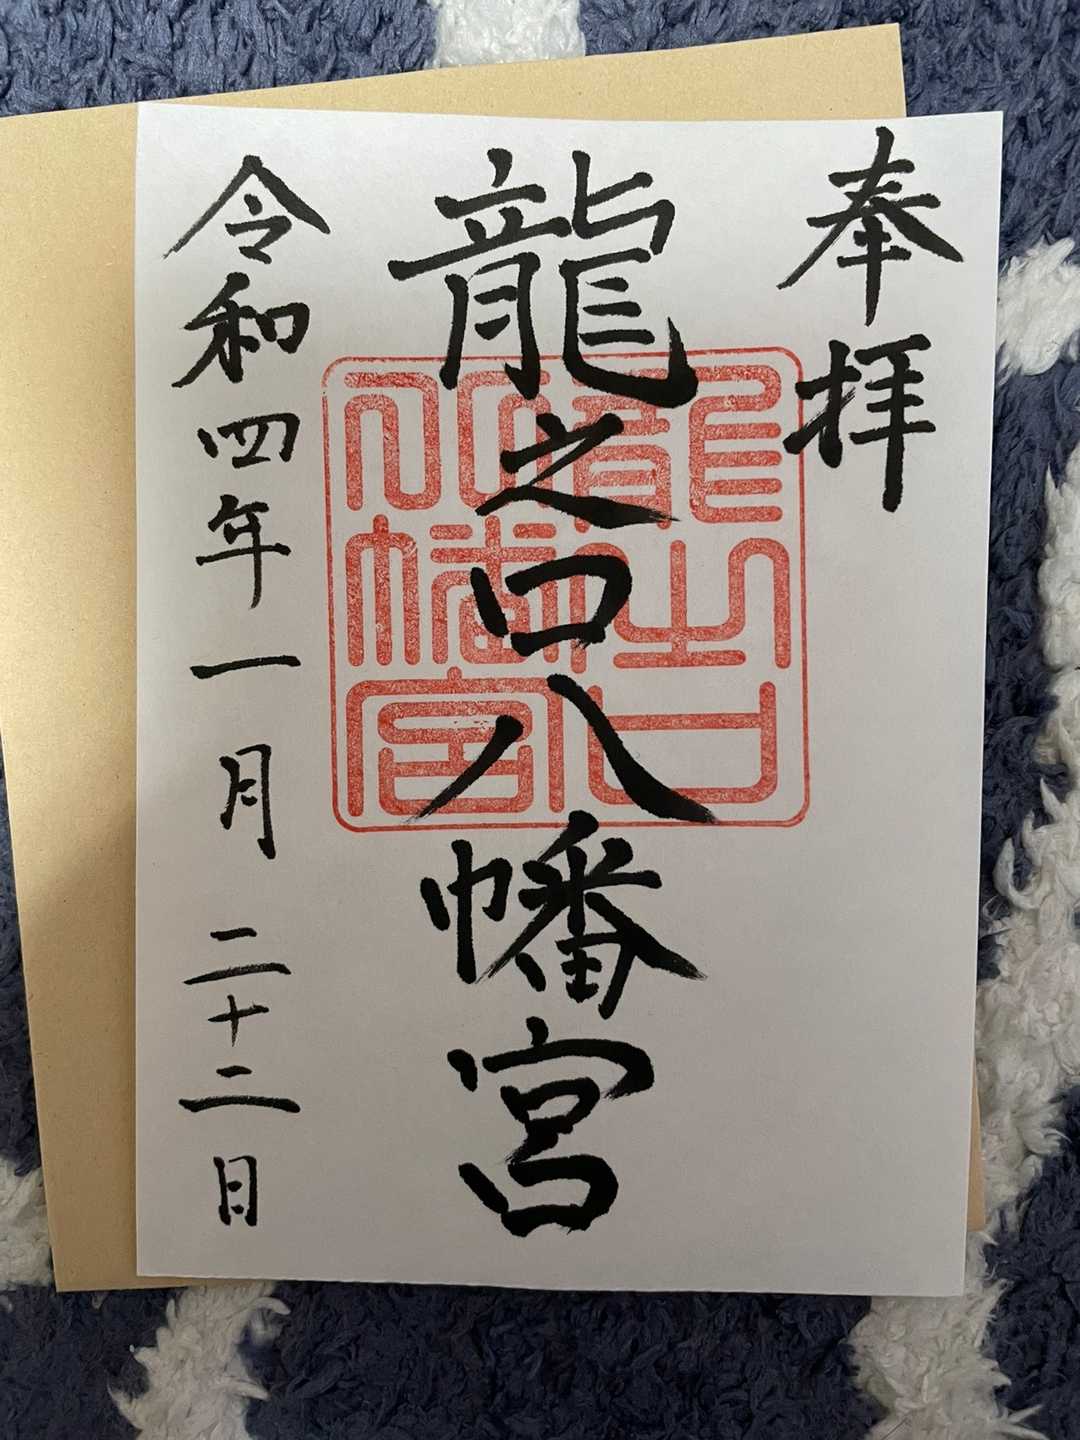 奉拝
龍之口八幡宮
龍之口八幡宮
令和四年一月二十二日